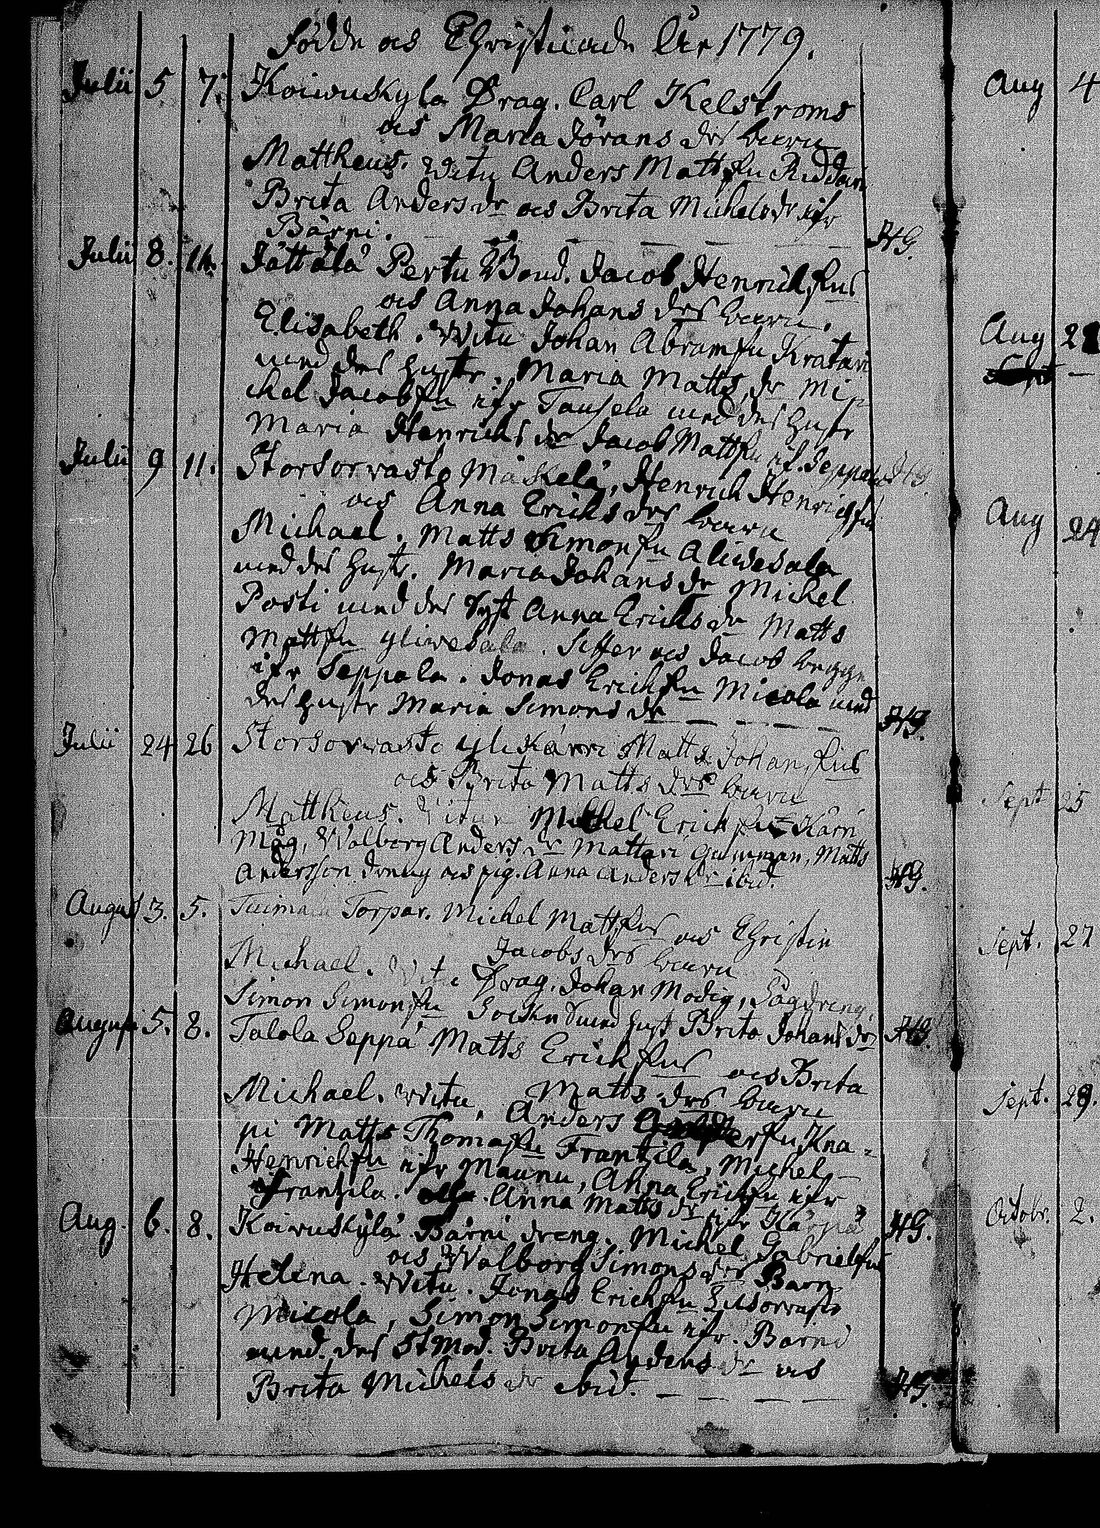 Födde och Christnade År 1779.
Julii 5 7. Koiwukyla Drag. Carl Kelstroms
och Maria Jörans drs barn
Mattheus. Witn Anders Mattssn Riddari
Brita Anders dr och Brita Michels dr ifr
Bärni. HG.
Julii 8. 11. Jättälä Pertu Bond. Jacob Henrichssns
och Anna Johans drs barn.
Elisabeth. Witn Johan Abramssn Kratari
med des hustr. Maria Matts dr Mi-
chel Jacobssn ifr Tausela med des hustr
Maria Henrichs dr Jacob Mattssn if. Seppälä HG
Julii 9 11. Storsorvasto Mäkelä, Henrich Henrichssns
och Anna Erichs drs barn
Michael. Matts Simonssn Aliwesala
med des hustr. Maria Johans dr Michel
Posti med des Syst Anna Erichs dr Matts
Mattssn yliwesala. och Jacob begge
ifr Seppala. Jonas Erichssn Micola med
des hustr Maria Simons dr HG.
Julii 24 26 Storsorvasto yliKärri Matts Johanssns
och Brita Matts drs barn
Mattheus. Witn Michel Erichssn Kärri
Måg, Walborg Anders dr Mattari, Matts
Andersson dreng och pig. Anna Anders dr ibid. HG.
August 3. 5. Torpar. Michel Mattssns och Christin
Jacobs drs barn
Michael. Witn Drag. Johan Modig, Sågdreng
Simon Simonssn med hust Brita Johans dr HG.
August 5. 8. Talola Seppä Matts Erichssns och Brita
Matts drs barn
Michael. Witn, Anders Kna-
pi Matts Thomassn Frantsila, Michel
Henrichssn ifr Maunu, Anna Erichssn ifr
Frantsila. Anna Matts dr ifr HG.
Aug. 6. 8. Koiwukylä Bärni dreng. Michel Gabrielssns
och Walborg Simons drs Barn
Helena. Witn. Jonas Erichssn
Micola, Simon Simonssn ifr. Barni
med. des StMod. Brita Anders dr och
Brita Michels dr ibid. HG.
Aug 4
Aug 21
Aug 24
Sept 25
Sept. 27
Sept. 29.
Octobr. 2.